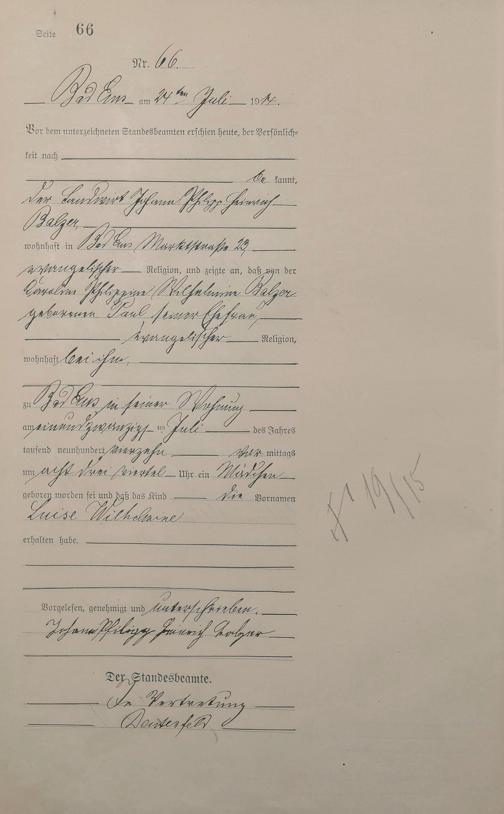 Seite 66
Nr. 66.
Bad Ems am 24ten Juli 1914.
Vor dem unterzeichneten Standesbeamten erschien heute, der Persönlich-
keit nach
be kannt,
der Landwirt Johann Philipp Heinrich
Balzer,
wohnhaft in Bad Ems Marktstraße 23,
evangelischer Religion, und zeigte an, daß von der
Caroline Philippine Wilhelmine Balzer
geborenen Paul, seiner Ehefrau,
evangelischer Religion,
wohnhaft bei ihm,
zu Bad Ems in seiner Wohnung
am einundzwanzigsten Juli des Jahres
tausend neunhundert vierzehn vor mittags
um acht drei viertel Uhr ein Mädchen
geboren worden sei und daß das Kind die Vornamen
Luise Wilhelmine
erhalten habe.
Vorgelesen, genehmigt und unterschrieben.
Johann Philipp Heinrich Balzer
Der Standesbeamte.
In Vertretung
19/1 15